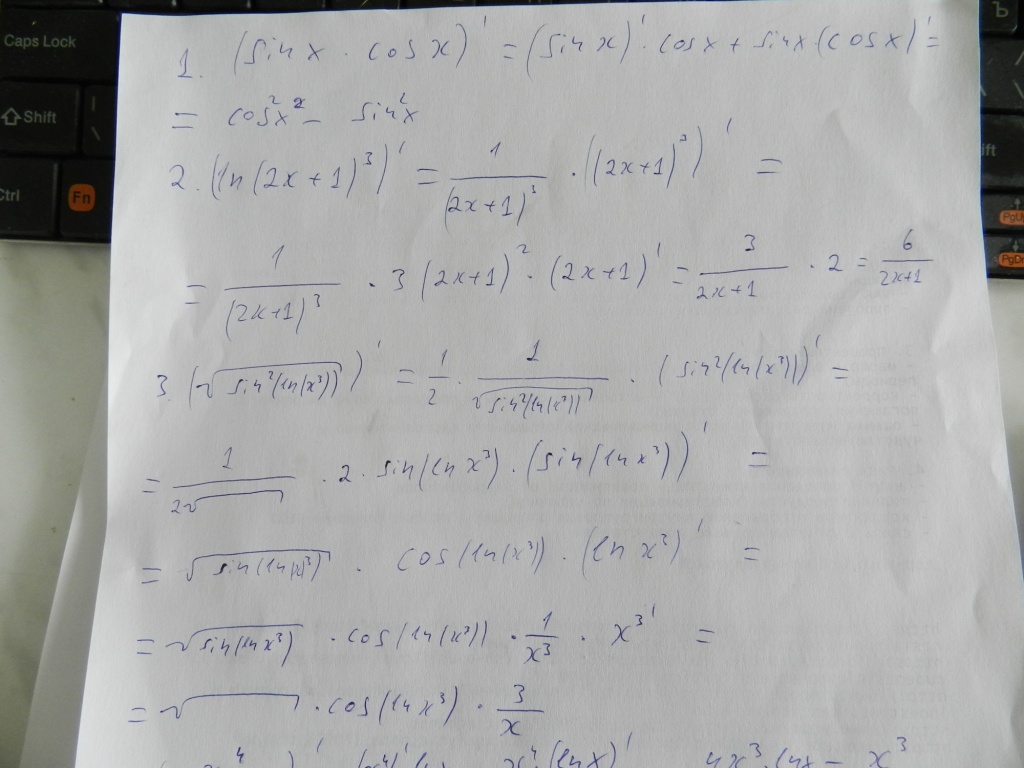 Caps Lock
Shift
Ctrl
Fn
Ъ
ift
PgUp
PgDn
1. (sin x · cos x)' = (sin x)' · cos x + sin x · (cos x)' =
= cos²x - sin²x
2. (ln (2x+1)³)' = 1/(2x+1)³ · ((2x+1)³)' =
= 1/(2x+1)³ · 3 (2x+1)² · (2x+1)' = 3/(2x+1) · 2 = 6/(2x+1)
3. (√(sin²(ln(x³))))' = 1/2 · 1/√(sin²(ln(x³))) · (sin²(ln(x³)))' =
= 1/(2√ ) · 2 · sin(ln x³) · (sin(ln x³))' =
= √(sin(ln(x)³)) · cos(ln(x³)) · (ln x³)' =
= √(sin(ln x³)) · cos(ln(x³)) · 1/x³ · x³' =
= √ · cos(ln x³) · 3/x